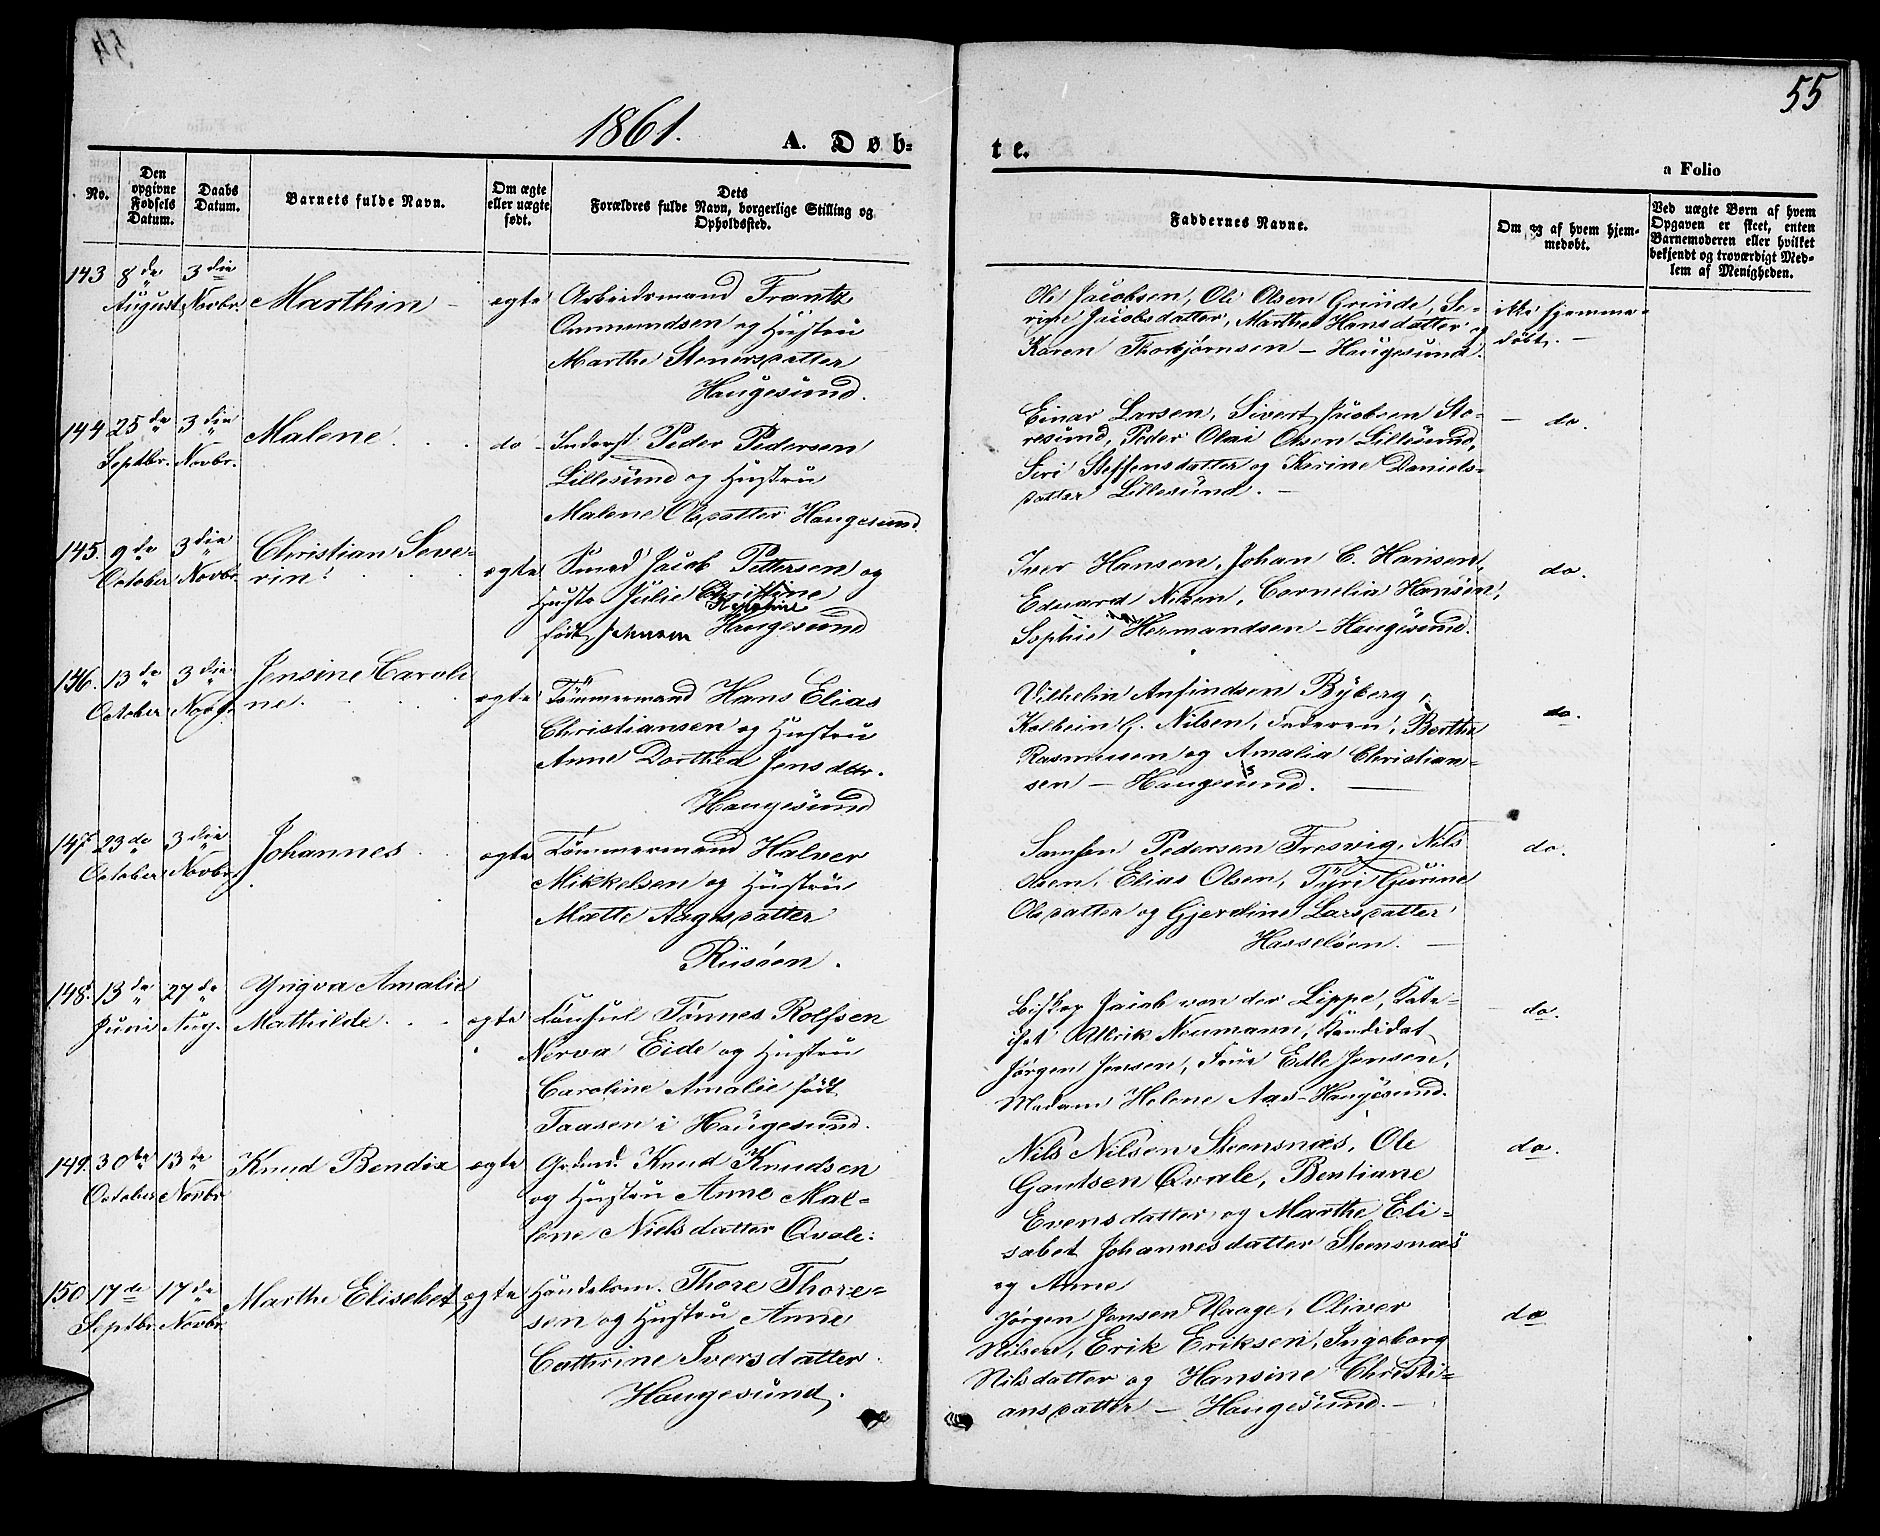 55
1861.
A. Døb-
te.
a Folio
No.
Den opgivne Fødsels Datum.
Daabs Datum.
Barnets fulde Navn.
Om ægte eller uægte født.
Dets Forældres fulde Navn, borgerlige Stilling og Opholdssted.
Faddernes Navne.
Om og af hvem hjemmedøbt.
Ved uægte Børn af hvem Opgaven er skeet, enten Barnemoderen eller hvilket bekjendt og troværdigt Medlem af Menigheden.
143 8de August 3die Novbr. Marthin – ægte
Arbeidsmand Frantz
Ommundsen og Hustru
Marthe Stenersdatter
Haugesund.
Ole Jacobsen, Ole Olsen Grinde, Se-
rine Jacobsdatter, Marthe Hansdatter og
Karen Thorbjørnsen – Haugesund.
ikke hjemme-
døbt. –
144 25de Septbr. 3die Novbr. Malene . . . do –
Inderst Peder Pedersen
Lillesund og Hustru
Malene Olsdatter Haugesund
Einar Larsen, Sivert Jacobsen Sto-
resund, Peder Olai Olsen Lillesund,
Siri Steffensdatter og Serine Daniels-
datter Lillesund. –
– do.
145. 9de October 3die Novbr. Christian Seve-
rin. . . . ægte
Smed Jacob Pettersen og
Hustr. Julie Christine
født Haugesund
Iver Hansen, Johan C. Hansen,
Eduard Nilsen, Cornelia Hansen,
Sophie Hermandsen – Haugesund.
do.
146. 13de October 3die Novbr. Jensine Caroli-
ne. . . . ægte
Tømmermand Hans Elias
Christiansen og Hustru
Anne Dorthea Jensdtr.
Haugesund
Vilhelm Anfindsen Byberg,
Kolbein G. Nilsen, Faderen, Berthe
Rasmussen og Amalia Christian-
sen – Haugesund. –
do.
147. 23de October 3die Novbr. Johannes . ægte
Tømmermand Halver
Mikkelsen og Hustru
Mætte Aagesdatter
Risøen.
Samson Pedersen Fresvig, Nils
Olsen, Elias Olsen, Tyri Gurine
Olsdatter og Gjerdine Larsdatter
Hasseløen. –
do.
148. 13de Juni 27de Aug. Yngva Amalie
Mathilde . . . ægte
Consul Tønnes Rolfsen
Nerva Eide og Hustru
Caroline Amalie født
Taasen i Haugesund.
Biskop Jacob von der Lippe, Kate-
ket Ulrik Neumann, Kandidat
Jørgen Jensen, Frue Edle Jensen,
Madam Helene Aas – Haugesund.
– do.
149. 30te October 13de Novbr Knud Bendix ægte
Grdmd. Knud Knudsen
og Hustru Anne Mal-
lene Nielsdatter Qvale.
Nils Nilsen Steensnæs, Ole
Gautsen Qvale, Bentiane
Evensdatter og Marthe Eli-
sabet Johannesdatter Steensnæs
og Anne
do.
150 17de Septbr. 17de Novbr. Marthe Elisebet ægte
Handelsm. Thore Thore-
sen og Hustru Anne
Cathrine Iversdatter.
Haugesund.
Jørgen Jensen Vaage, Oliver
Nilsen, Erik Eriksen, Ingeborg
Nilsdatter og Hansine Christi-
ansdatter – Haugesund. –
do